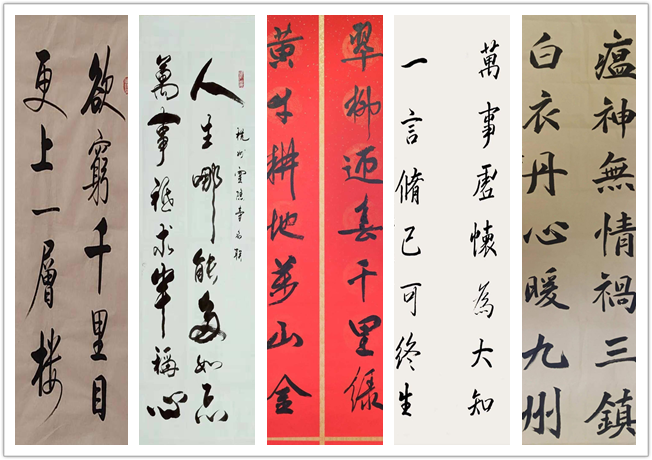 欲窮千里目
更上一層楼
人生哪能多如意
萬事祗求半稱心
翠柳迎春千里绿
黄牛耕地萬山金
萬事虚懷為大知
一言脩己可终生
瘟神無情禍三鎮
白衣丹心暖九州